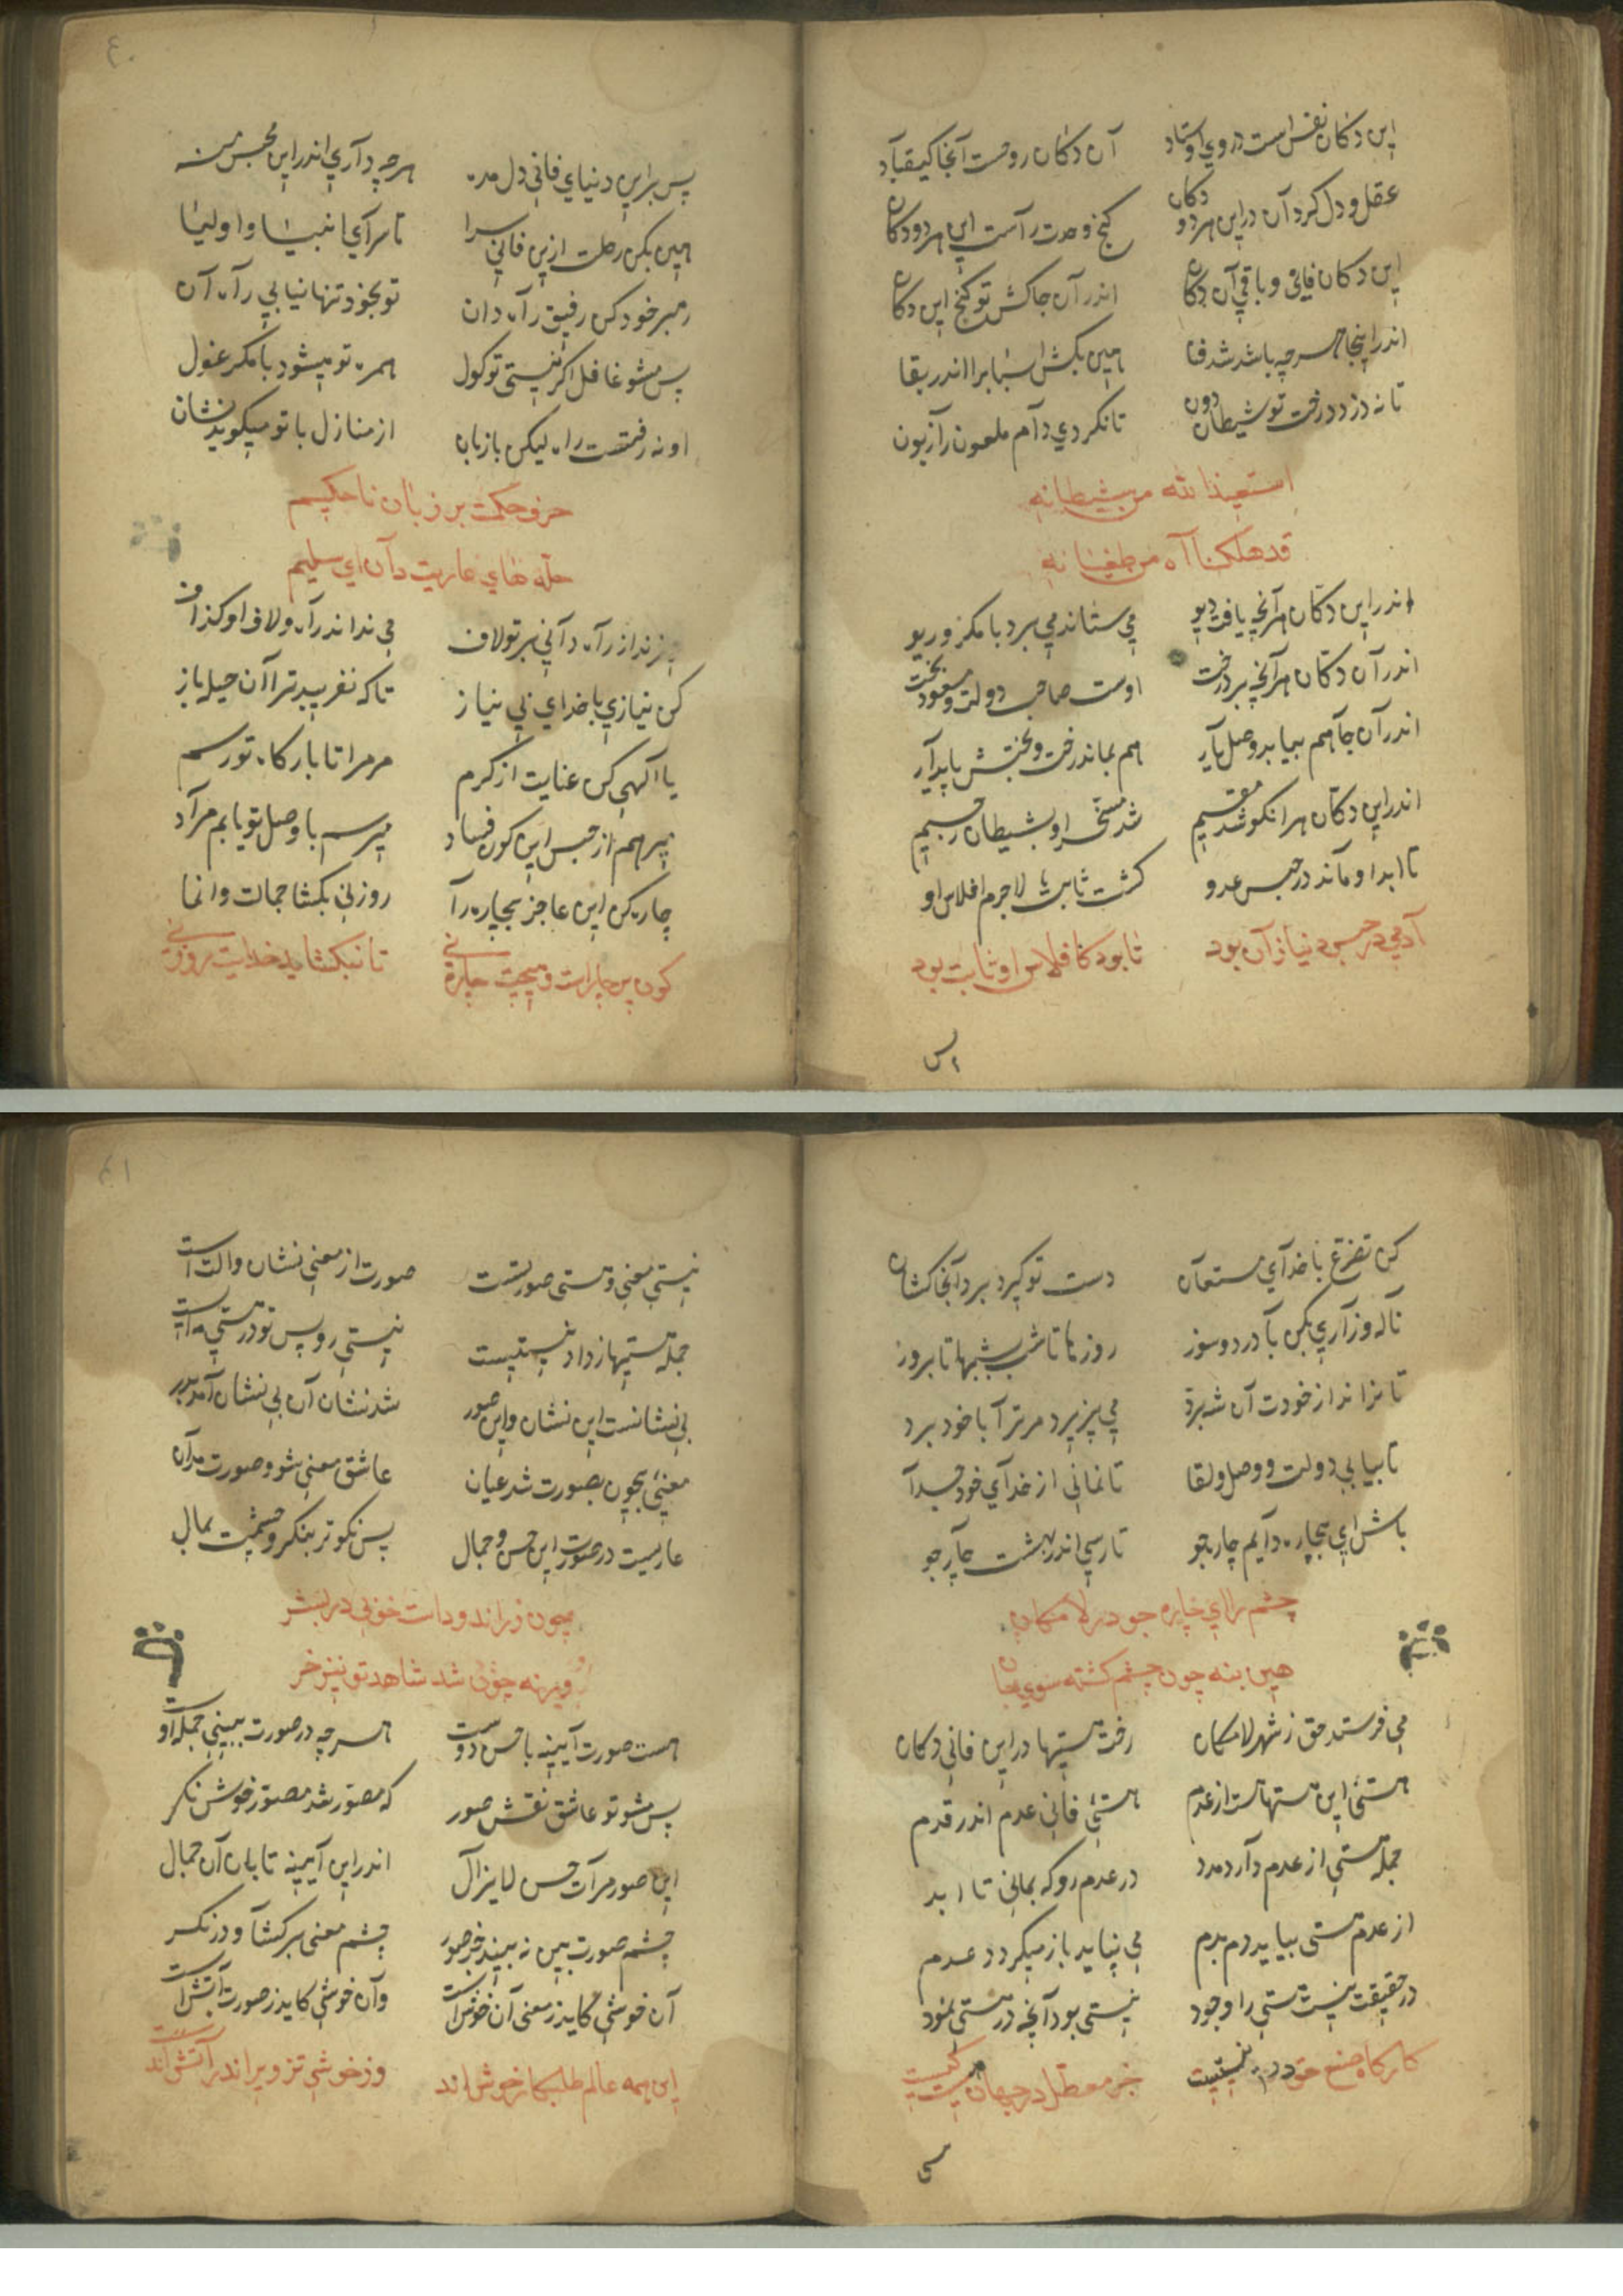 این دکان نفس است در وی اوستاد آن دکان روحست آنجا کیقباد
عقل و دل کرد آن در این هر دو دکان گنج وحدت راست این هر دو دکان
این دکان فانی و باقی آن دکان اندر آن جا کش تو گنج این دکان
اندر اینجا هر چه باشد شد فنا هین بکش اسبابرا اندر بقا
تا نه دزدد رخت تو شیطان دون تا نکردی دام ملعون را زبون
استعیذ الله من شیطانه
قد هلکنا آه من طغیانه
اندر این دکان هر آنچه یافت دیو می ستاند می برد با مکر و ریو
اندر آن دکان هر آنچه برد رخت اوست صاحب دولت و مسعود بخت
اندر آن جا هم بیابد وصل یار هم بماند رخت و بختش پایدار
اندر این دکان هر انکو شد مقیم شد مسخر او بشیطان رجیم
تا ابد او ماند در حبس عدو کشت ثابت لاجرم افلاس او
آدمی در حبس دنیا زان بود تا بود کافلاس او ثابت بود
٤٠
پس براین دنیای فانی دل مده هرچه داری اندر این محبس منه
هین بکن رحلت ازین فانی سرا تا سرای انبیا و اولیا
رهبر خود کن رفیق راه دان تو بخود تنها نیابی راه آن
پس مشو غافل اکر نیستی تو کول همره تو میشود با مکر غول
او نه رفتست راه لیکن با زبان از منازل با تو میکوید نشان
حرف حکمت بر زبان نا حکیم
حله های عاریت دان ای سلیم
زند از راه دانی بر تو لاف می نداند راه و لاف او کذاف
کن نیازی با خدای بی نیاز تا که نفریبد ترا آن حیله باز
یا الهی کن عنایت از کرم مر مرا تا بارکاه تو رسم
میرهم از حبس این کون فساد میرسم با وصل تو یابم مراد
چاره کن این عاجز بیچاره را روزنی بکشا جمالت وانما
کون پر چاراست و هیچت چاره نی تا نبکشاید خدایت روزنی
کن تضرع با خدای مستعان دست تو کیرد برد آنجا کشان
ناله و زاری بکن با درد و سوز روزها تا شب شبها تا بروز
می پذیرد مر ترا با خود برد
تا بیابی دولت و وصل و لقا تا نمانی از خدای خود جدا
باش ای بیچاره دایم چاره جو تا رسی اندر بهشت چارجو
چشم را ای چاره جو در لا مکان
هین بنه چون چشم کشته سوی جان
می فرستد حق ز شهر لامکان رفت هستیها در این فانی دکان
هستی این هستهاست از عدم هستی فانی عدم اندر قدم
جمله هستی از عدم دارد مدد در عدم رو که بمانی تا ابد
از عدم هستی بیاید دم بدم می نپاید باز میکردد عدم
در حقیقت نیست هستی را وجود نیستی بود آنچه در هستی نمود
کارکاه صنع حق در نیستیست جز معطل در جهان هست کیست
٤١
نیستی معنی و هستی صورتست صورت از معنی نشان و الت است
جمله هستیها ز داد نیستیست نیستی رو پس تو در هستی مایست
بی نشانست این نشان و این صور شد نشان آن بی نشان آمد بدر
معنیی بیچون بصورت شد عیان عاشق معنی شو و صورت مدان
عاریست در صورت این حسن و جمال پس نکوتر بنکر و چشمت بمال
چون زر اندودات خوبی در بشر
ورنه چون شد شاهد تو پیر خر
هست صورت آیینه با حسن دوست هر چه در صورت ببینی جمله او
پس مشو تو عاشق نقش صور که مصور شد مصور خوش نکر
این صور مرآت حسن لایزال اندر این آیینه تابان آن جمال
چشم صورت بین نه بیند جز صور چشم معنی بر کشا و در نکر
آن خوشی کاید ز معنی آن خوش است وآن خوشی کاید ز صورت آتش است
این همه عالم طلبکار خوش اند وز خوشی تزویر اندر آتش اند